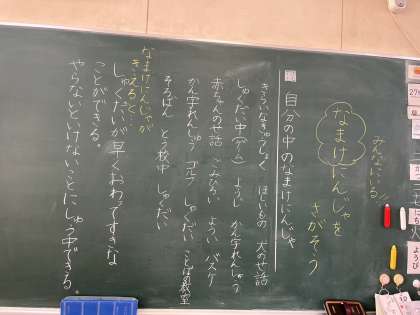 みんなにいる
なまけにんじゃを
さがそう
自分の中のなまけにんじゃ
きらいなきゅうしょく ほしいもの 犬のせ話
しゅくだい中(ゲーム) ようじ かん字れんしゅう
赤ちゃんのせ話 ごみひろい ようい バスケ
かん字れんしゅう ゴルフ しゅくだい ことばの教室
そろばん とう校中 しゅくだい
なまけにんじゃが
きえると
しゅくだいが早くおわってすきな
ことができる。
やらないといけないことにしゅう中できる。